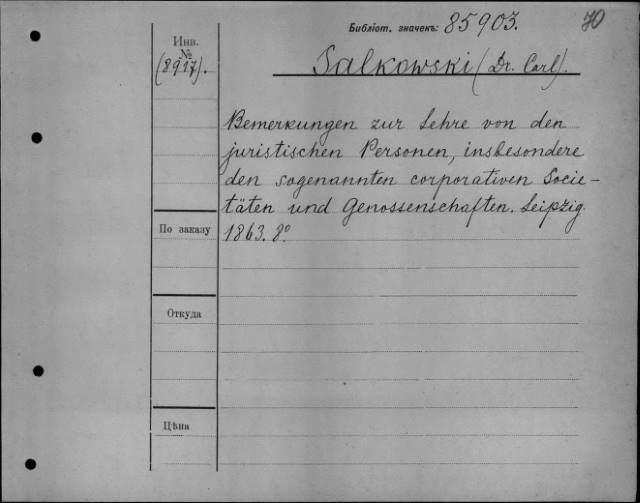 Библіот. значекъ: 85903.
70
Инв.
№
(8917).
Salkowski (Dr. Carl).
Bemerkungen zur Lehre von den
juristischen Personen, insbesondere
den sogenannten corporativen Socie-
täten und Genossenschaften. Leipzig.
1863. 8º
По заказу
Откуда
Цѣна